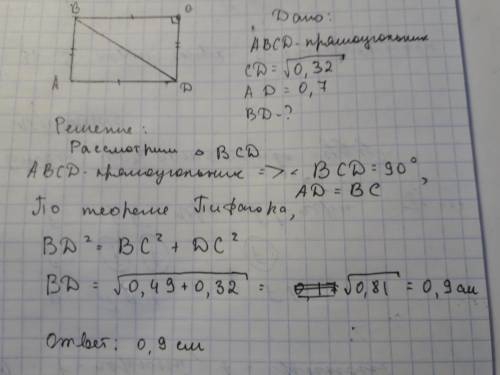 B
C
A
D
Дано:
ABCD - прямоугольник
CD = √0,32
AD = 0,7
BD - ?
Решение:
Рассмотрим ▵ BCD
ABCD - прямоугольник => < BCD = 90°,
AD = BC
По теореме Пифагора,
BD² = BC² + DC²
BD = √0,49 + 0,32 = √0,81 = 0,9 см
Ответ: 0,9 см